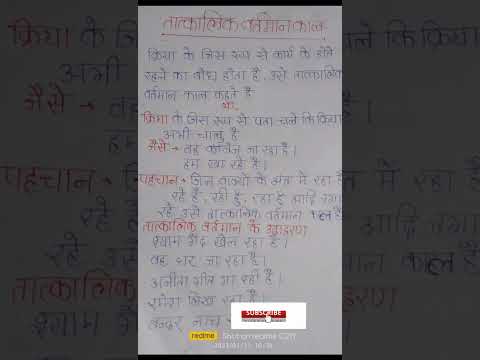 तात्कालिक वर्तमान काल
क्रिया के जिस रूप से कार्य के होते
रहने का बोध होता है, उसे तात्कालिक
वर्तमान काल कहते है
या
क्रिया के जिस रूप से पता चले कि क्रिया
अभी चालू है
जैसे → वह कॉलेज जा रहा है।
हम खा रहे है।
पहचान → जिन वाक्यों के अंत में रहा है
रहे हैं, रही है, रहा हूँ आदि लगा
रहे उसे तात्कालिक वर्तमान काल है
तात्कालिक वर्तमान के उदाहरण
श्याम गेंद खेल रहा है।
वह घर जा रहा है।
अनीता गीत गा रही है।
रमेश लिख रहा है।
बन्दर नाच
SUBSCRIBE
realme
Shot on realme C21Y